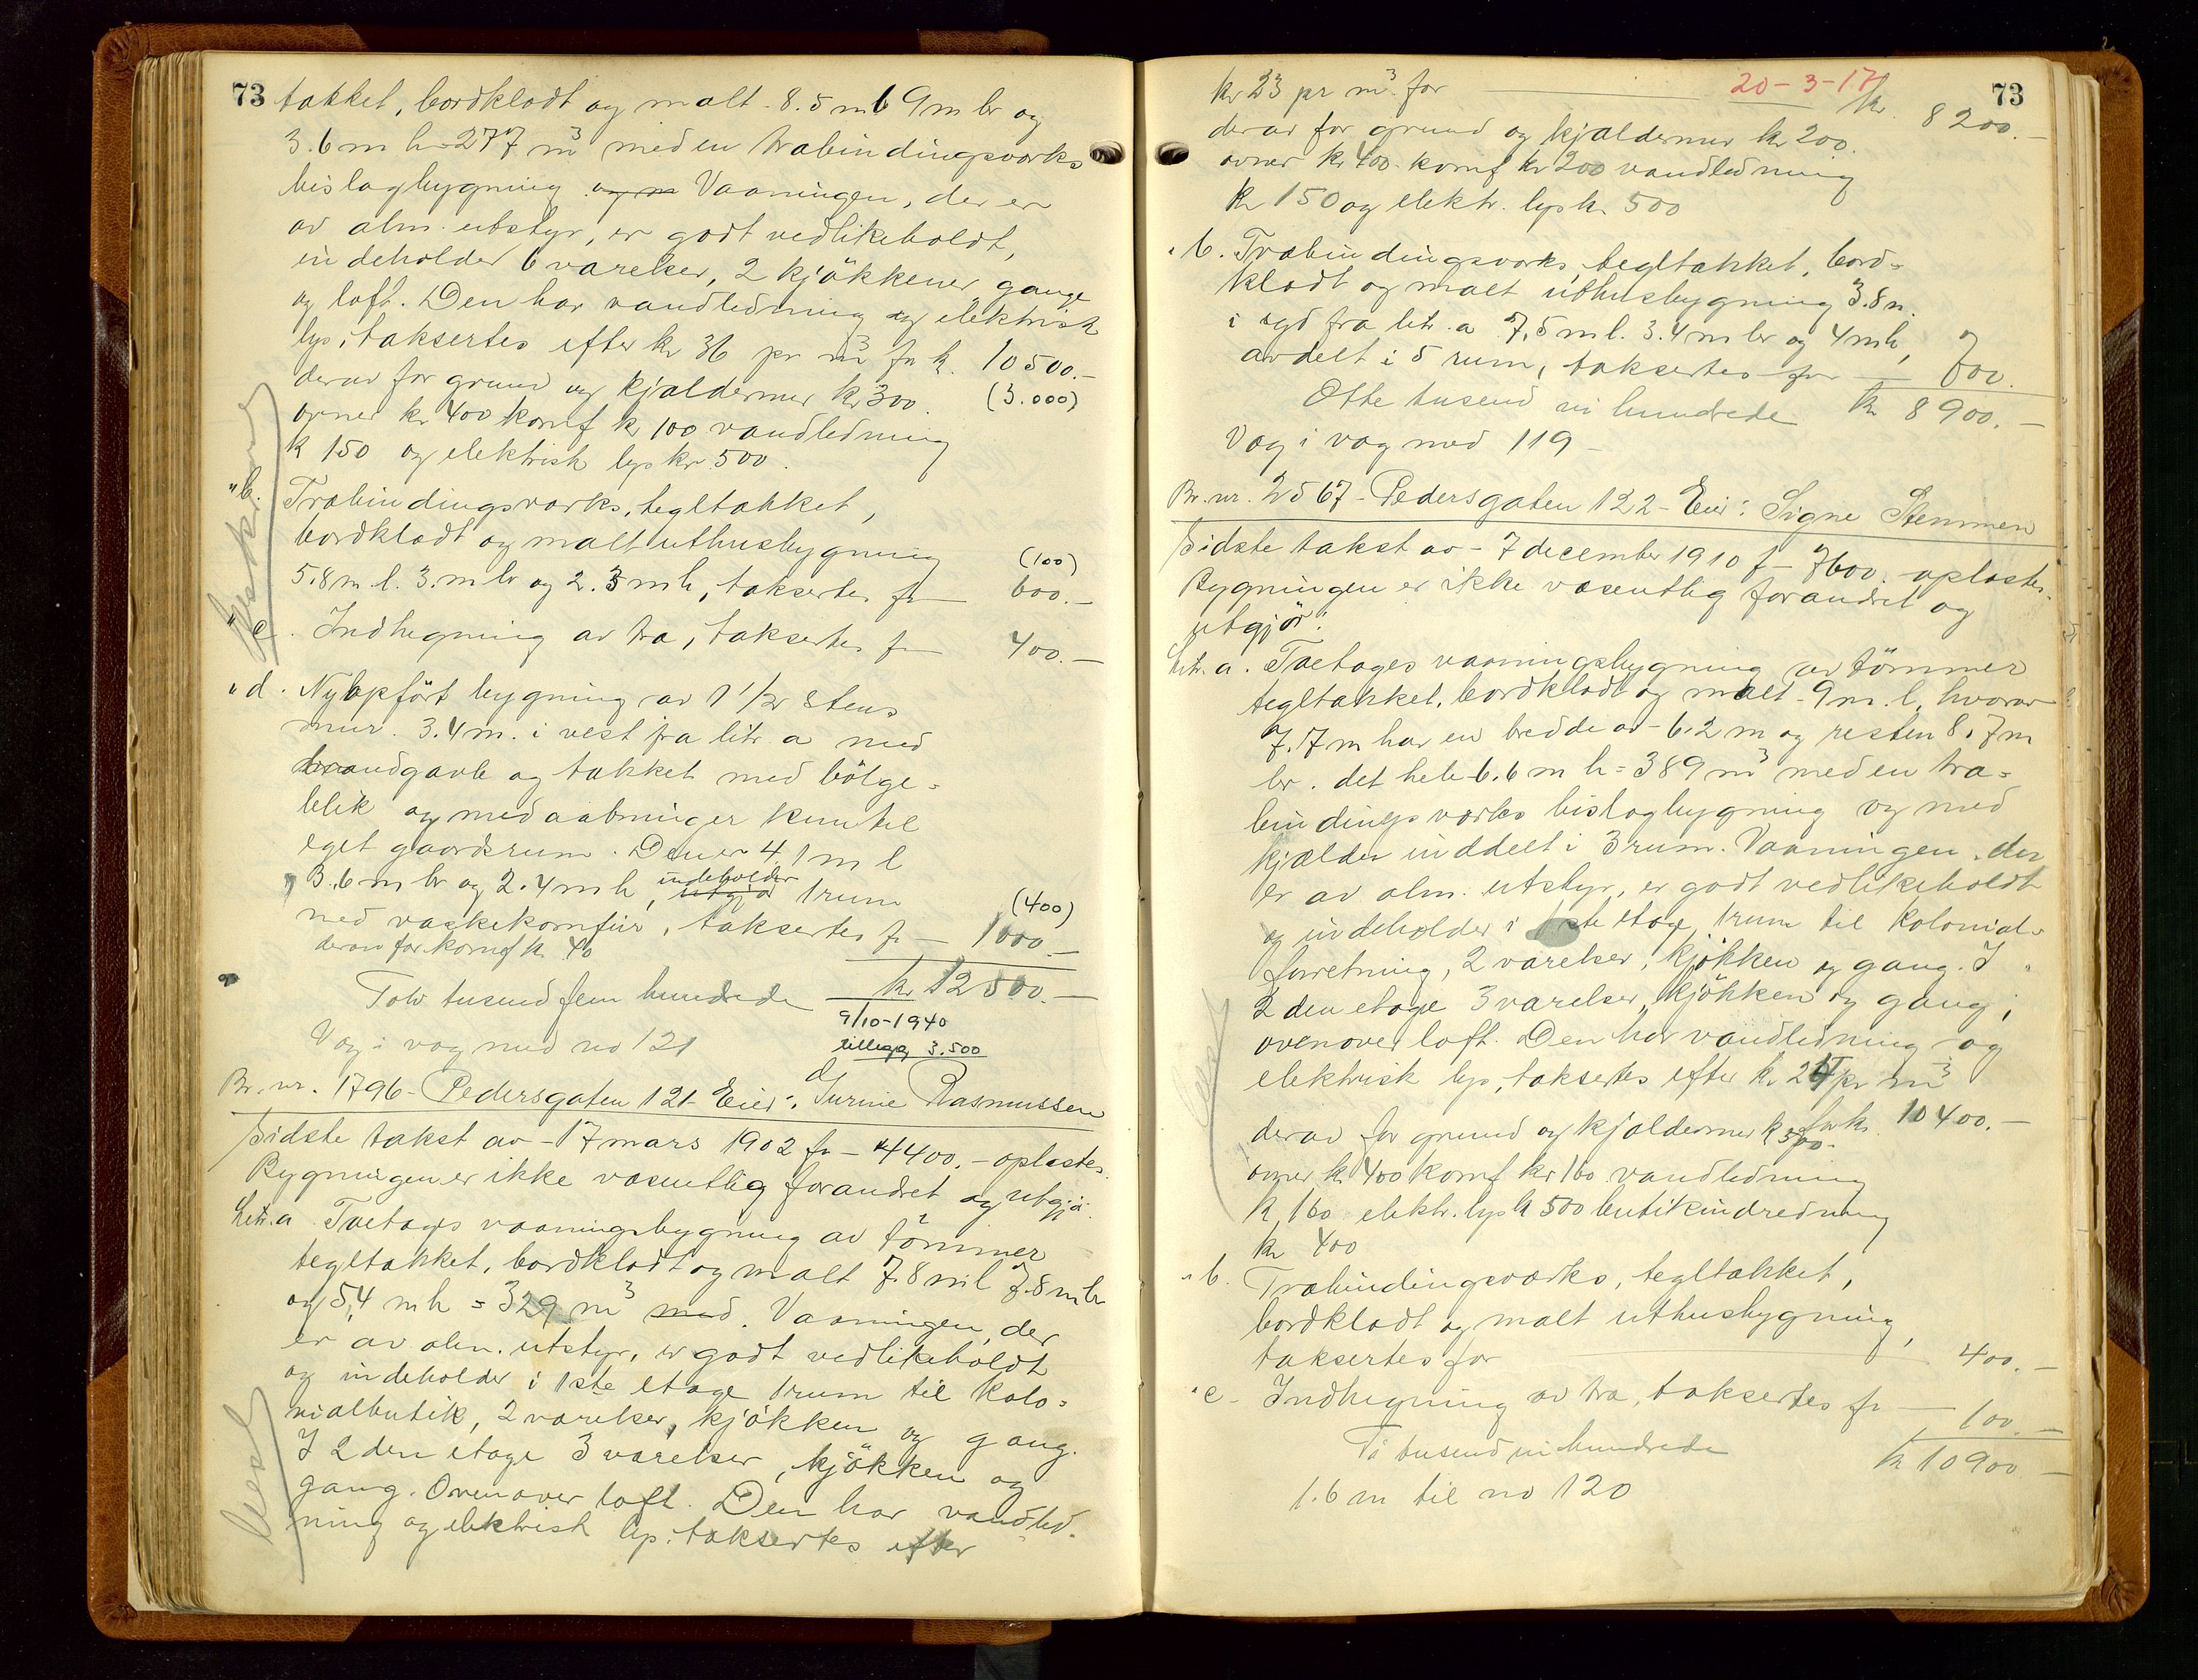 73
takket, bordklædt og malt - 8.5 m l 9 m br og
3.6 m h = 277 m³ med en træbindingsværks
bislagbygning og m Vaaningen, der er
av alm. utstyr, er godt vedlikeholdt,
indeholder 6 værelser, 2 kjökkener, gange
og loft. Den har vandledning og elektrisk
lys, taksertes efter kr 36 pr m³ for k. 10500.-
derav for grund og kjældermur kr 300. (3.000)
ovner kr 400 komf kr 100 vandledning
k 150 og elektrisk lys kr 500.
" b. Træbindingsværks, tegltækket,
bordklædt og malt uthusbygning (100)
5.8 m l. 3. m br og 2.3 m h, taksertes for — 600.-
" c. Indhegning av træ, taksertes for — 400.-
" d. Nyopfört bygning av 1 1/2 stens
mur. 3.4 m. i vest fra litr. a med
brandgavle og tækket med bölge-
blik og med aabninger kun til
eget gaardsrum. Den er 4.1 m l
3.6 m br og 2.4 m h, utgjör indeholder 1 rum (400)
med vaskekomfür, taksertes for — 1000.-
derav for komf k. 40
Tolv tusend fem hundrede — kr 12500.-
9/10-1940
tillegg 3.500
Væg i væg med no 121
Br. nr. 1796 - Pedersgaten 121 - Eier: Jurine Rasmussen
Sidste takst av - 17 mars 1902 for - 4400.- oplæstes.
Bygningen er ikke væsentlig forandret og utgjör
Litr. a Toetages vaaningsbygning av tömmer
tegltækket, bordklædt og malt 7.8 m l 7.8 m br
og 5,4 m h = 329 m³ med. Vaaningen, der
er av alm. utstyr, er godt vedlikeholdt
og indeholder i 1ste etage 1 rum til kolo-
nialbutik, 2 værelser, kjökken og gang.
I 2den etage 3 værelser, kjökken og
gang. Ovenover loft. Den har vandled-
ning og elektrisk lys. taksertes efter
73
20-3-17
kr 23 pr m³. for — kr. 8200.-
derav for grund og kjældermur kr 200.
ovner kr 400 komf kr 200 vandledning
kr 150 og elektr. lys kr. 500
" b. Træbindingsværks, tegltækket, bord-
klædt og malt uthusbygning 3.8 m.
i syd fra litr. a 7,5 m l. 3.4 m br og 4 m h,
avdelt i 5 rum, taksertes for — 700.
Otte tusend ni hundrede kr 8900.-
Væg i væg med 119 -
Br. nr. 2567 - Pedersgaten 122 - Eier: Signe Stemmen
Sidste takst av - 7 december 1910 f - 7600. - oplæstes.
Bygningen er ikke væsentlig forandret og
utgjör:
Litr. a. Toetages vaaningsbygning av tömmer
tegltækket, bordklædt og malt - 9 m. l, hvorav
7.7 m har en bredde av - 6.2 m og resten 8.7 m
br. det hele 6.6 m h = 389 m³ med en træ-
bindingsværks bislagbygning og med
kjælder inddelt i 3 rum. Vaaningen, der
er av alm. utstyr, er godt vedlikeholdt
og indeholder i 1ste etage 1 rum til kolonial-
forretning, 2 værelser, kjökken og gang. I
2den etage 3 værelser, kjökken og gang;
ovenover loft. Den har vandledning og
elektrisk lys, taksertes efter kr 27 pr m³
for kr. 10400.-
derav for grund og kjældermur k 500.-
ovner kr 400 komf kr 160 vandledning
k 160 elektr. lys k 500 butikindredning
kr 400
" b. Træbindingsværks, tegltækket,
bordklædt og malt uthusbygning,
taksertes for — 400.-
" c - Indhegning av træ, taksertes for — 100.-
Ti tusend ni hundrede kr 10900 -
1.6 m til no 120